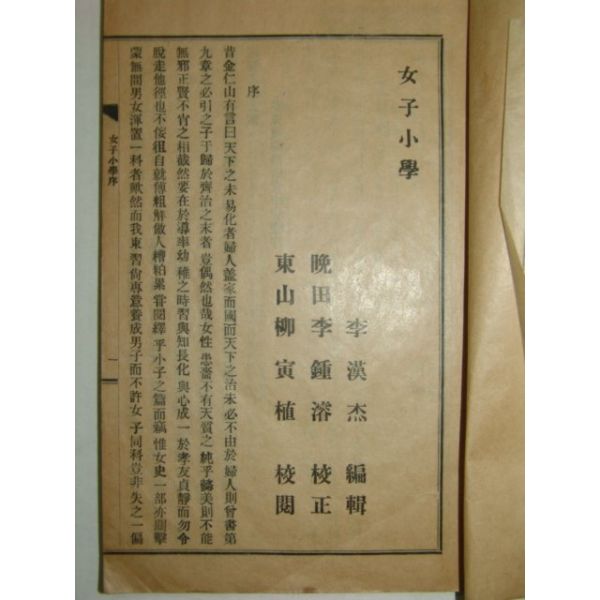 女子小學
李漢杰 編輯
晩田李鍾濬 校正
東山柳寅植 校閱
序
昔金仁山有言曰天下之未易化者婦人盖家而國而天下之治未必不由於婦人則曾書第
九章之必引之子于歸於齊治之末者豈偶然也哉女性患嗇不有天質之純乎鑄美則不能
無邪正賢不肖之相截然要在於導率幼稚之時習與知長化與心成一於孝友貞靜而勿令
脫走他徑也不佞徂自就傅粗解做人糟粕累嘗閱繹乎小子之篇而竊惟女史一部亦則擊
蒙無間男女渾置一科者歟然而我東習尙專意養成男子而不許女子同科豈非失之一偏
女子小學序
一